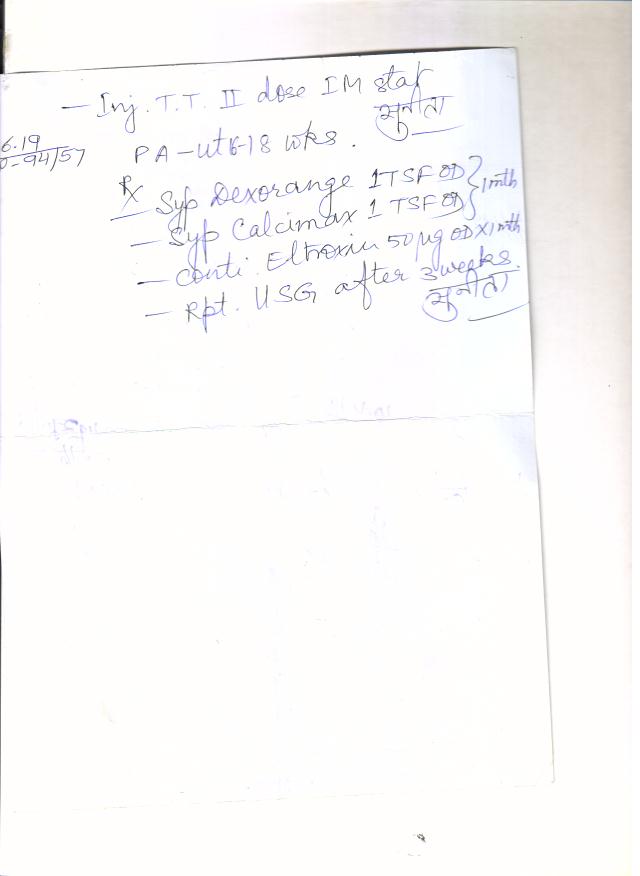 — Inj. T.T. II dose IM stat
सुनीता
6.19
94/57
PA - ut 16-18 wks.
Rx
— Syp Dexorange 1 TSF OD } 1 mth
— Syp Calcimax 1 TSF OD
— Conti Eltroxin 50 µg OD x 1 mth
— Rpt. USG after 3 weeks.
सुनीता